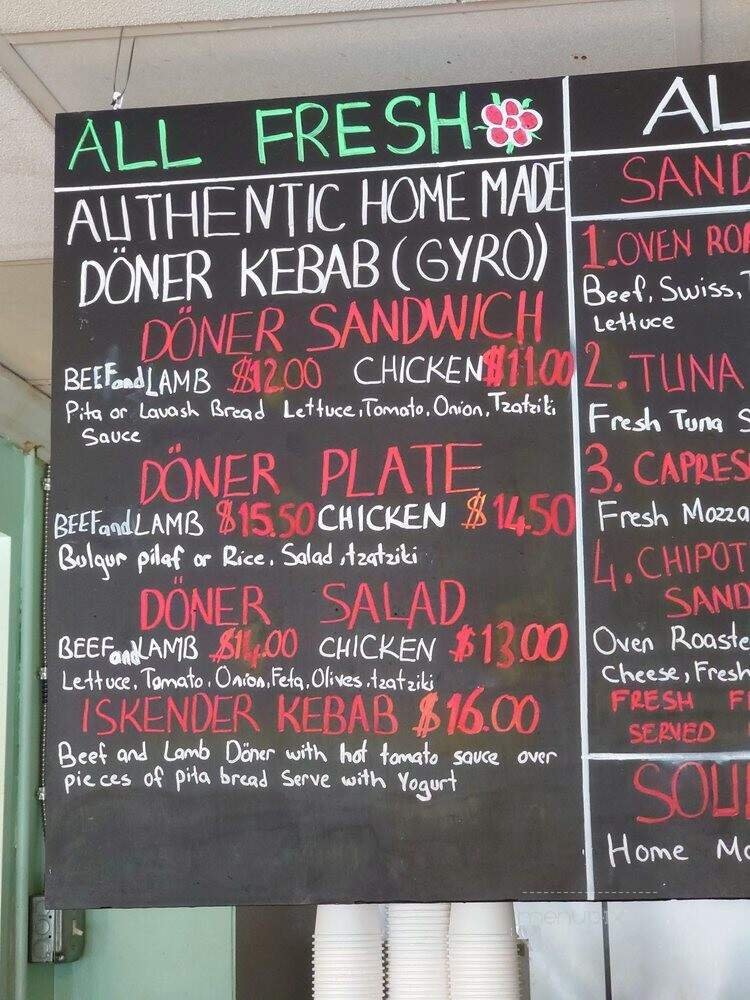 ALL FRESH
AUTHENTIC HOME MADE
DÖNER KEBAB (GYRO)
DÖNER SANDWICH
BEEF and LAMB $12.00 CHICKEN $11.00
Pita or Lavash Bread Lettuce, Tomato, Onion, Tzatziki
Sauce
DÖNER PLATE
BEEF and LAMB $15.50 CHICKEN $14.50
Bulgur pilaf or Rice, Salad, tzatziki
DÖNER SALAD
BEEF and LAMB $14.00 CHICKEN $13.00
Lettuce, Tomato, Onion, Feta, Olives, tzatziki
ISKENDER KEBAB $16.00
Beef and Lamb Döner with hot tomato sauce over
pieces of pita bread Serve with Yogurt
AL
SAND
1. OVEN ROA
Beef, Swiss,
Lettuce
2. TUNA
Fresh Tuna S
3. CAPRES
Fresh Mozza
4. CHIPOT
SAND
Oven Roaste
Cheese, Fresh
FRESH F
SERVED
SOU
Home Ma
menupix